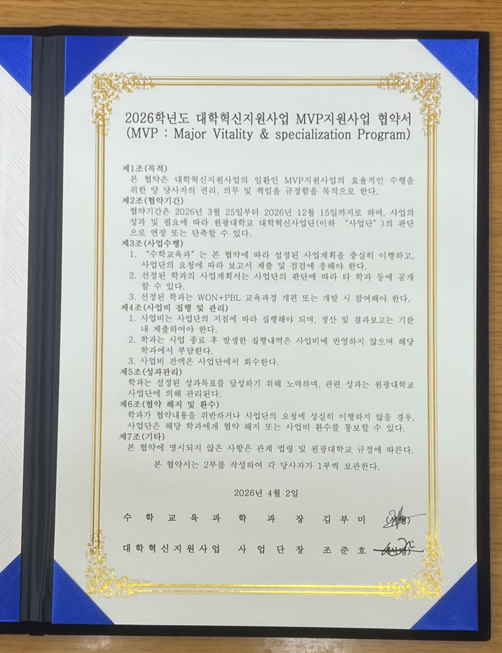 2026학년도 대학혁신지원사업 MVP지원사업 협약서
(MVP : Major Vitality & specialization Program)
제1조(목적)
본 협약은 대학혁신지원사업의 일환인 MVP지원사업의 효율적인 수행을
위한 양 당사자의 권리, 의무 및 책임을 규정함을 목적으로 한다.
제2조(협약기간)
협약기간은 2026년 3월 25일부터 2026년 12월 15일까지로 하며, 사업의
성과 및 필요에 따라 원광대학교 대학혁신사업단(이하 “사업단”)의 판단
으로 연장 또는 단축할 수 있다.
제3조(사업수행)
1. “수학교육과”는 본 협약에 따라 설정된 사업계획을 충실히 이행하고,
사업단의 요청에 따라 보고서 제출 및 점검에 응해야 한다.
2. 선정된 학과의 사업계획서는 사업단의 판단에 따라 타 학과 등에 공개
할 수 있다.
3. 선정된 학과는 WON+PBL 교육과정 개편 또는 개발 시 참여해야 한다.
제4조(사업비 집행 및 관리)
1. 사업비는 사업단의 지침에 따라 집행해야 되며, 정산 및 결과보고는 기한
내 제출하여야 한다.
2. 학과는 사업 종료 후 발생한 집행내역은 사업비에 반영하지 않으며 해당
학과에서 부담한다.
3. 사업비 잔액은 사업단에서 회수한다.
제5조(성과관리)
학과는 설정된 성과목표를 달성하기 위해 노력하며, 관련 성과는 원광대학교
사업단에 의해 관리된다.
제6조(협약 해지 및 환수)
학과가 협약내용을 위반하거나 사업단의 요청에 성실히 이행하지 않을 경우,
사업단은 해당 학과에게 협약 해지 또는 사업비 환수를 통보할 수 있다.
제7조(기타)
본 협약에 명시되지 않은 사항은 관계 법령 및 원광대학교 규정에 따른다.
본 협약서는 2부를 작성하여 각 당사자가 1부씩 보관한다.
2026년 4월 2일
수학교육과 학과장 김부미
대학혁신지원사업 사업단장 조준호